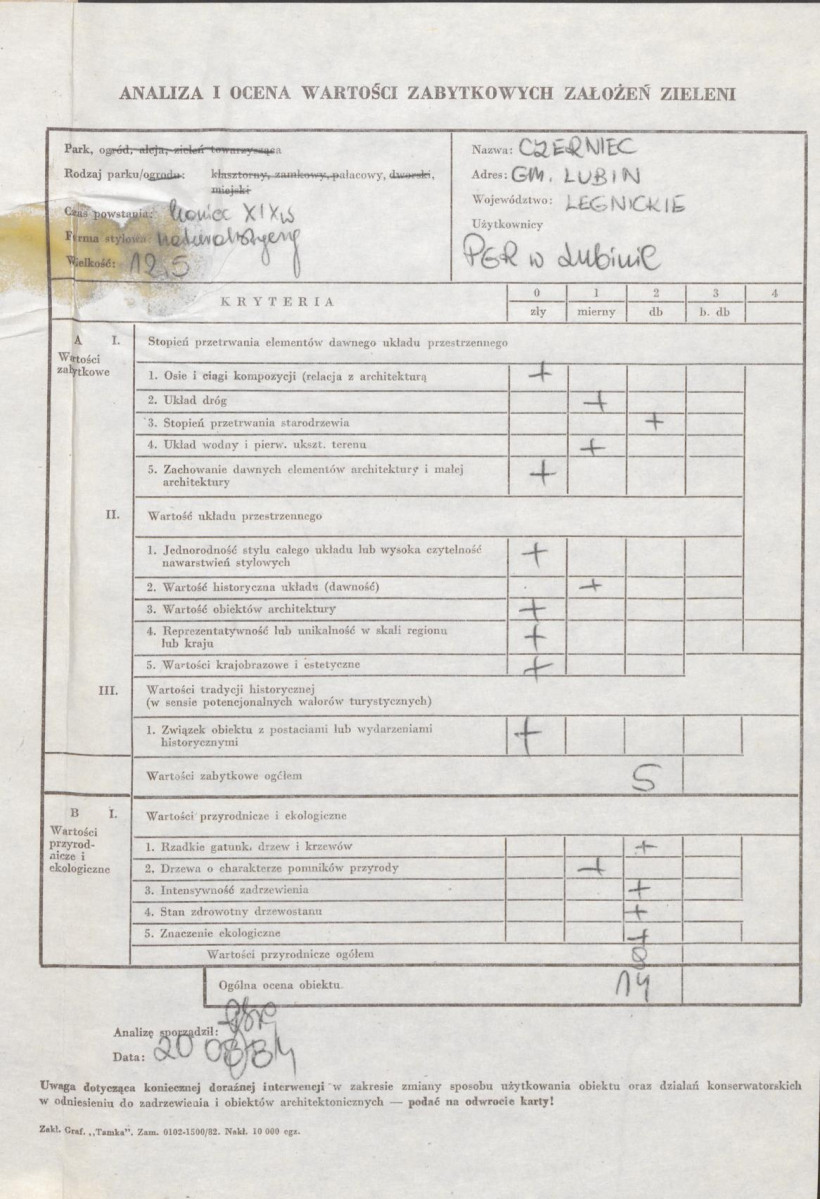 ANALIZA I OCENA WARTOŚCI ZABYTKOWYCH ZAŁOŻEŃ ZIELENI
Park, ogród, aleja, zieleń towarzysząca
Rodzaj parku/ogrodu: klasztorny, zamkowy, pałacowy, dworski,
miejski
Czas powstania: koniec XIXw
Forma stylowa: naturalistyczny
Wielkość: 12,5
Nazwa: CZERNIEC
Adres: GM. LUBIN
Województwo: LEGNICKIE
Użytkownicy
PGR w Lubinie
KRYTERIA
0 1 2 3 4
zły mierny db b. db
A I. Stopień przetrwania elementów dawnego układu przestrzennego
Wartości
zabytkowe
1. Osie i ciągi kompozycji (relacja z architekturą +
2. Układ dróg +
3. Stopień przetrwania starodrzewia +
4. Układ wodny i pierw. ukszt. terenu +
5. Zachowanie dawnych elementów architektury i małej
architektury +
II. Wartość układu przestrzennego
1. Jednorodność stylu całego układu lub wysoka czytelność
nawarstwień stylowych +
2. Wartość historyczna układu (dawność) +
3. Wartość obiektów architektury +
4. Reprezentatywność lub unikalność w skali regionu
lub kraju +
5. Wartości krajobrazowe i estetyczne +
III. Wartości tradycji historycznej
(w sensie potencjonalnych walorów turystycznych)
1. Związek obiektu z postaciami lub wydarzeniami
historycznymi +
Wartości zabytkowe ogółem 5
B I. Wartości przyrodnicze i ekologiczne
Wartości
przyrod-
nicze i
ekologiczne
1. Rzadkie gatunk. drzew i krzewów +
2. Drzewa o charakterze pomników przyrody +
3. Intensywność zadrzewienia +
4. Stan zdrowotny drzewostanu +
5. Znaczenie ekologiczne +
Wartości przyrodnicze ogółem
Ogólna ocena obiektu. 14
Analizę sporządził:
Data: 20 08 84
Uwaga dotycząca koniecznej doraźnej interwencji w zakresie zmiany sposobu użytkowania obiektu oraz działań konserwatorskich
w odniesieniu do zadrzewienia i obiektów architektonicznych — podać na odwrocie karty!
Zakł. Graf. „Tamka". Zam. 0102-1500/82. Nakł. 10 000 egz.